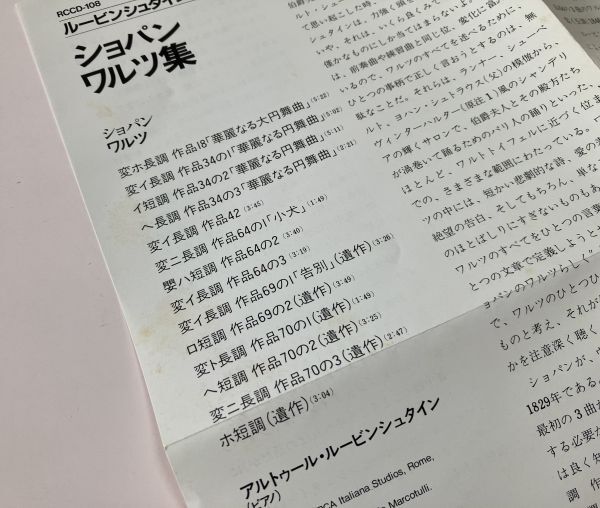 RCCD-108
ルービンシュタイン
ショパン
ワルツ集
ショパン
ワルツ
変ホ長調 作品18「華麗なる大円舞曲」(5:22)
変イ長調 作品34の1「華麗なる円舞曲」(5:02)
イ短調 作品34の2「華麗なる円舞曲」(5:11)
ヘ長調 作品34の3「華麗なる円舞曲」(2:21)
変イ長調 作品42 (3:45)
変ニ長調 作品64の1「小犬」(1:49)
嬰ハ短調 作品64の2 (3:40)
変イ長調 作品64の3 (3:19)
変イ長調 作品69の1「告別」(遺作) (3:26)
ロ短調 作品69の2 (遺作) (3:49)
変ト長調 作品70の1 (遺作) (1:49)
ヘ短調 作品70の2 (遺作) (3:25)
変ニ長調 作品70の3 (遺作) (2:47)
ホ短調 (遺作) (3:04)
アルトゥール・ルービンシュタイン
(ピアノ)
RCA Italiana Studios, Rome,
Marcotulli.
て思い起こした時、
シュタインは、力強く頭を
いや、それは、いくら良くみて
僅かなものにしか当てはまらないと
は、前奏曲や練習曲と同じ位、変化に富ん
いるので、ワルツのすべてを述べるために、
ひとつの事柄で正しく言おうとするのは、無
駄なことだ。それらは、ランナー、シューベ
ルト、ヨハン・シュトラウス(父)の模倣から、
ヴィンターハルター(原注1)風のシャンデリ
アの輝くサロンで、伯爵夫人とその殿方たち
が渦巻いて踊るためのパリ人の踊りといった、
ほとんど、ワルトトイフェルに近づく位ま
での、さまざまな範囲にわたっている。ワ
ツの中には、短かい悲劇的な詩、愛の
絶望の告白、そしてもちろん、単な
のほとばしりにすぎないものもあ
ワルツのすべてをひとつの言葉
とつの文章で定義しようと
ョパンのワルツらしく”
で、ワルツのひとつひ
ものと考え、それが
かを注意深く聴く
ショパンが、ウ
1829年である。
最初の3曲が
する必要が
は良く知
調 作